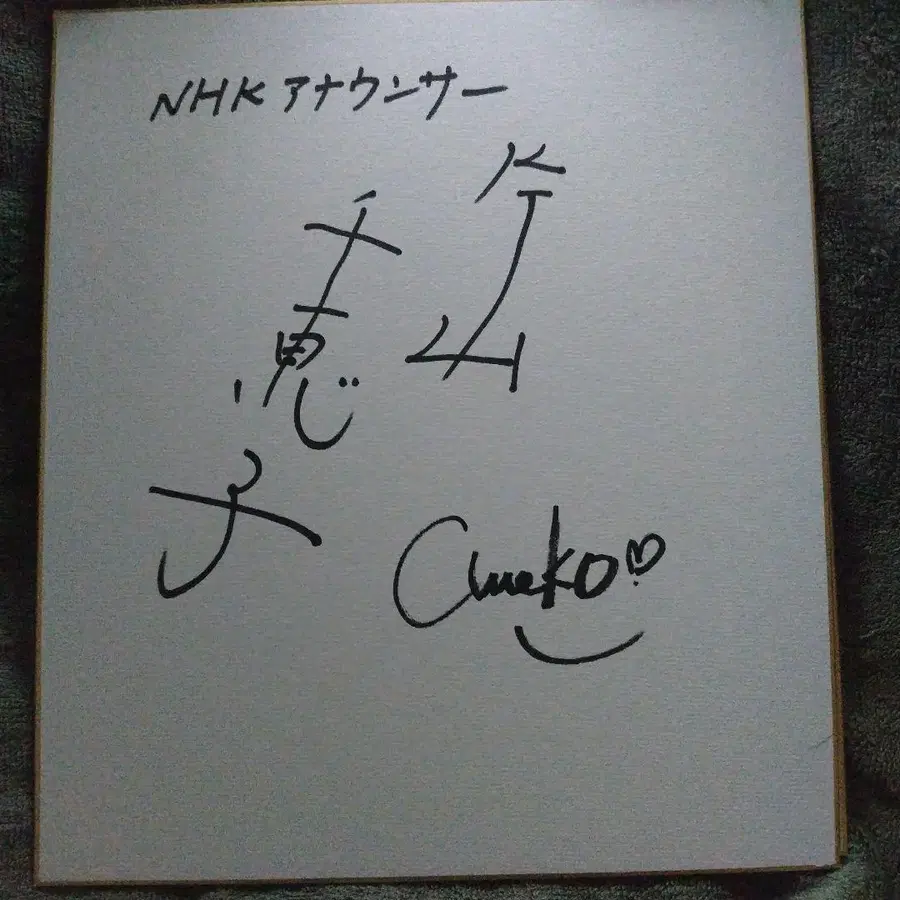 NHKアナウンサー
今山
千恵子
Chieko♡